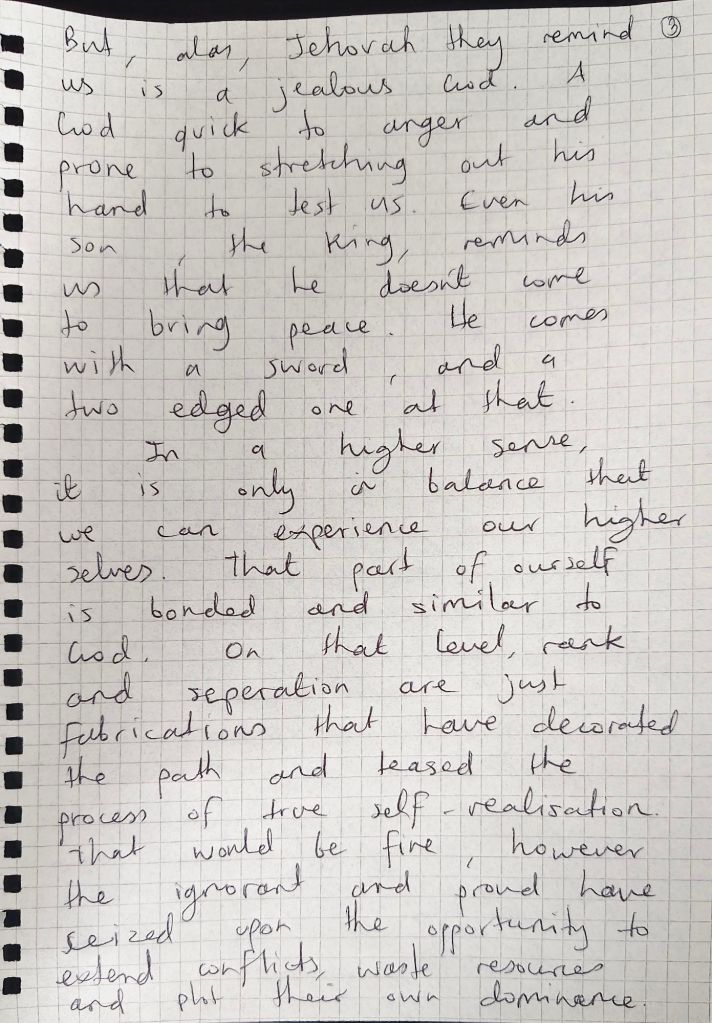 But, alas, Jehovah they remind ③
us is a jealous God. A
God quick to anger and
prone to stretching out his
hand to test us. Even his
son, the King, reminds
us that he doesn't come
to bring peace. He comes
with a sword, and a
two edged one at that.
In a higher sense,
it is only in balance that
we can experience our higher
selves. That part of ourself
is bonded and similar to
God. On that level, rank
and seperation are just
fabrications that have decorated
the path and teased the
process of true self-realisation.
That would be fine, however
the ignorant and proud have
seized upon the opportunity to
extend conflicts, waste resources
and plot their own dominance.